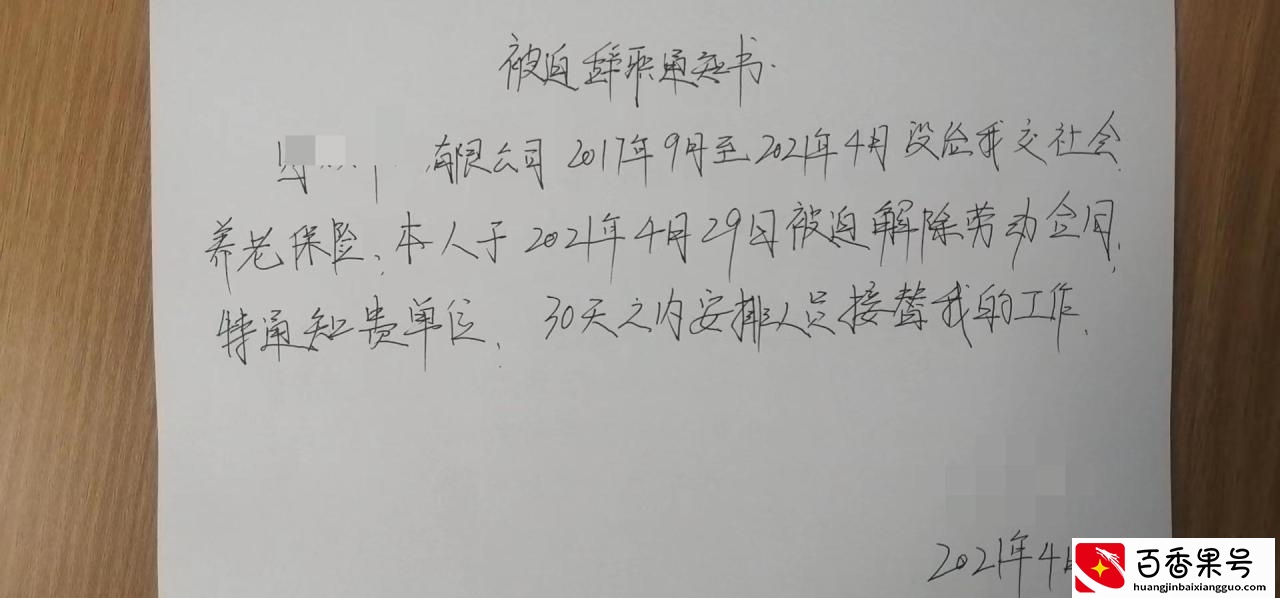 被迫辞职通知书.
有限公司 2017年9月至2021年4月没给我交社会
养老保险,本人于2021年4月29日被迫解除劳动合同,
特通知贵单位,30天之内安排人员接替我的工作.
2021年4
百香果号
huangjinbaixiangguo.com